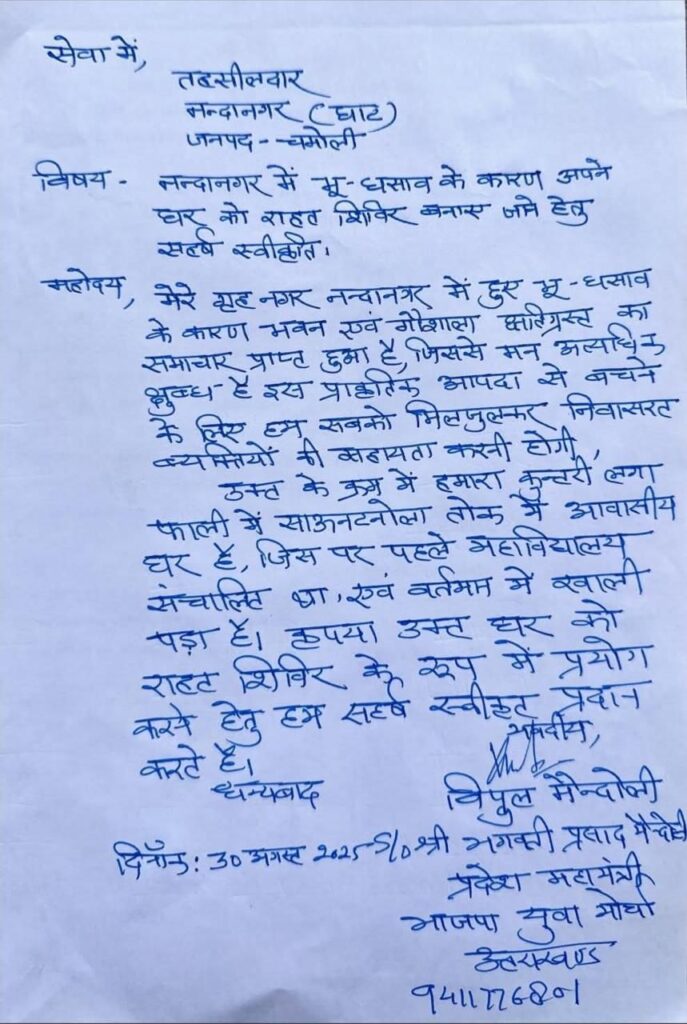 सेवा में,
तहसीलदार
नन्दानगर (घाट)
जनपद - चमोली
विषय - नन्दानगर में भू-धसाव के कारण अपने
घर को राहत शिविर बनाए जाने हेतु
सहर्ष स्वीकृति।
महोदय, मेरे गृह नगर नन्दानगर में हुए भू-धसाव
के कारण भवन एवं गौशाला क्षतिग्रस्त का
समाचार प्राप्त हुआ है, जिससे मन अत्यधिक
क्षुब्ध है इस प्राकृतिक आपदा से बचने
के लिए हम सबको मिलजुलकर निवासरत
व्यक्तियों की सहायता करनी होगी,
उक्त के क्रम में हमारा कुन्तरी लगा
फाली में तोक में आवासीय
घर है, जिस पर पहले महाविद्यालय
संचालित था, एवं वर्तमान में खाली
पड़ा है। कृपया उक्त घर को
राहत शिविर के रूप में प्रयोग
करने हेतु हम सहर्ष स्वीकृत प्रदान
करते है।
भवदीय,
धन्यबाद
विपुल मैन्दोली
दिनाँक: 30 अगस्त 2025 S/O श्री भगवती प्रसाद मैन्दोली
प्रदेश महामंत्री
भाजपा युवा मोर्चा
उत्तराखण्ड
9411776801